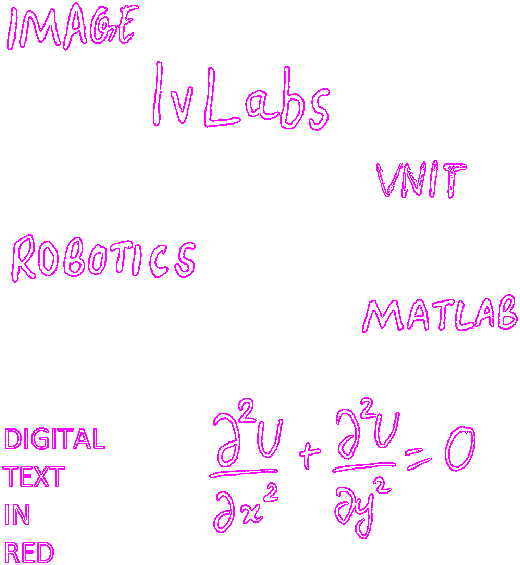 IMAGE
IvLabs
VNIT
ROBOTICS
MATLAB
DIGITAL
TEXT
IN
RED
∂²U/∂x² + ∂²U/∂y² = 0